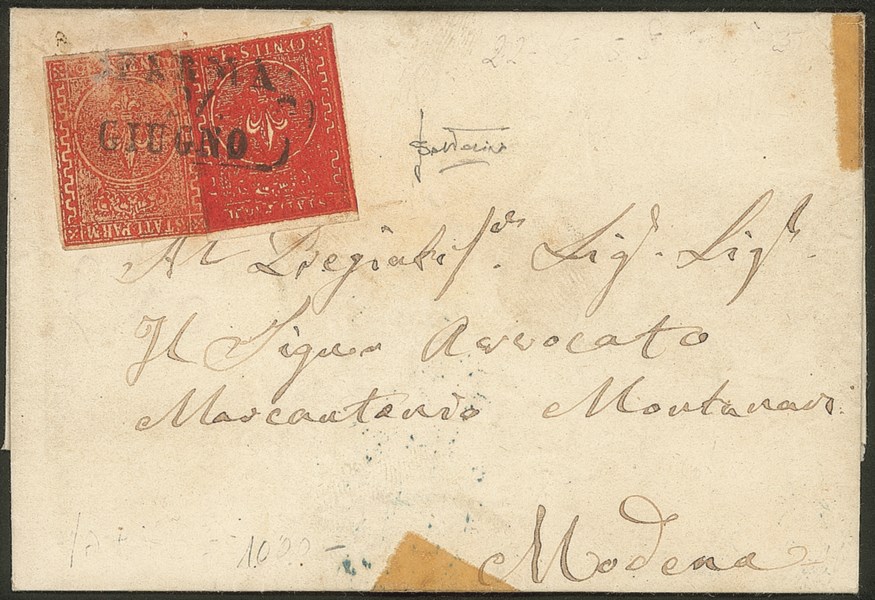 PARMA
GIUGNO
CENTES.
STATI PARM
Al Pregiatis.º Sig. Sig.
Il Signor Avvocato
Marcantonio Montanari
Modena
1000.-